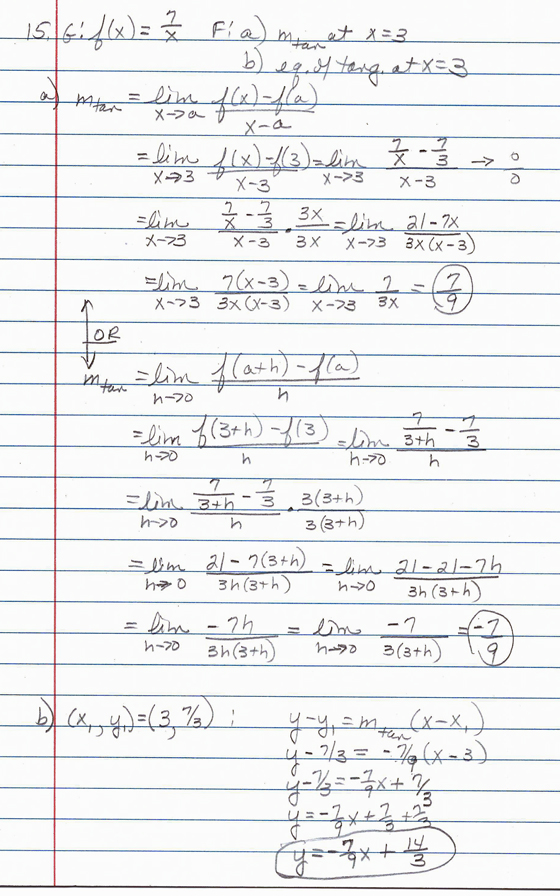 15. G: f(x) = 7/x F: a) m_tan at x=3
b) eq. of tang. at x=3
a) m_tan = lim_{x→a} (f(x) - f(a))/(x-a)
= lim_{x→3} (f(x) - f(3))/(x-3) = lim_{x→3} (7/x - 7/3)/(x-3) → 0/0
= lim_{x→3} (7/x - 7/3)/(x-3) · 3x/3x = lim_{x→3} (21-7x)/(3x(x-3))
= lim_{x→3} 7(x-3)/(3x(x-3)) = lim_{x→3} 7/3x = 7/9
OR
m_tan = lim_{h→0} (f(a+h) - f(a))/h
= lim_{h→0} (f(3+h) - f(3))/h = lim_{h→0} (7/(3+h) - 7/3)/h
= lim_{h→0} (7/(3+h) - 7/3)/h · 3(3+h)/3(3+h)
= lim_{h→0} (21 - 7(3+h))/(3h(3+h)) = lim_{h→0} (21-21-7h)/(3h(3+h))
= lim_{h→0} -7h/(3h(3+h)) = lim_{h→0} -7/(3(3+h)) = -7/9
b) (x₁, y₁) = (3, 7/3) : y - y₁ = m_tan (x - x₁)
y - 7/3 = -7/9 (x-3)
y - 7/3 = -7/9 x + 7/3
y = -7/9 x + 7/3 + 7/3
y = -7/9 x + 14/3